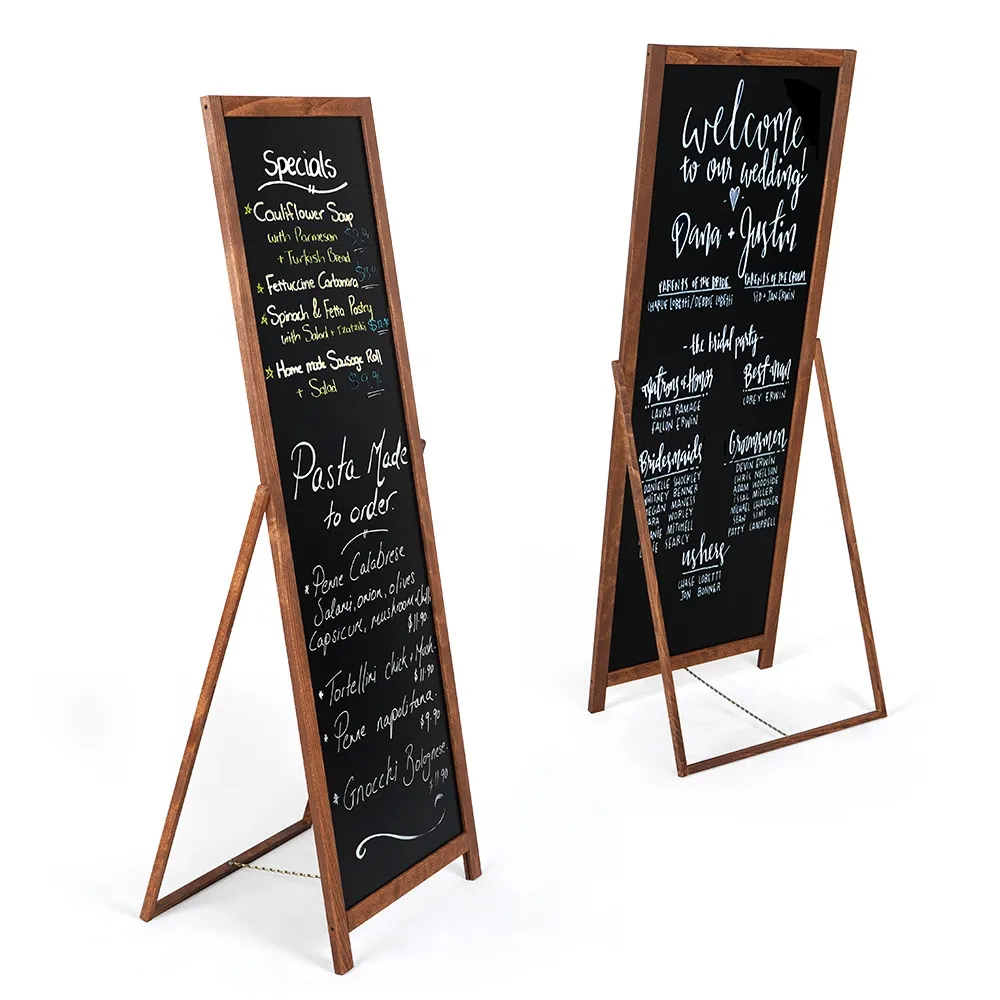 Specials
* Cauliflower Soup
with Parmesan
+ Turkish Bread
* Fettuccine Carbonara
* Spinach & Fetta Pastry
with Salad + Tzatziki
* Home made Sausage Roll
+ Salad $9.90
Pasta Made
to order.
* Penne Calabrese
Salami, onion, olives
Capsicum, mushroom
$11.90
* Tortellini chick + Mush.
$11.90
* Penne napolitana.
$9.90
* Gnocchi Bolognese.
$11.90
welcome
to our wedding!
Dana + Justin
PARENTS OF THE BRIDE
CHARLIE LOBETTI/DEBBIE LOBETTI
PARENTS OF THE GROOM
SID + JAN ERWIN
- the bridal party -
Matrons of Honor
LAURA RAMAGE
FALLON ERWIN
Best Man
COREY ERWIN
Bridesmaids
DANIELLE SHOCKLEY
WHITNEY BENNER
MEGAN MANESS
WORLEY
MITCHELL
SEARCY
Groomsmen
DEVIN ERWIN
CHRIS NEILSON
ADAM WOODSIDE
ISSAC MILLER
MICHAEL CHANDLER
SEAN SIMS
PATTY CAMPBELL
ushers
CHASE LOBETTI
JON BONNER